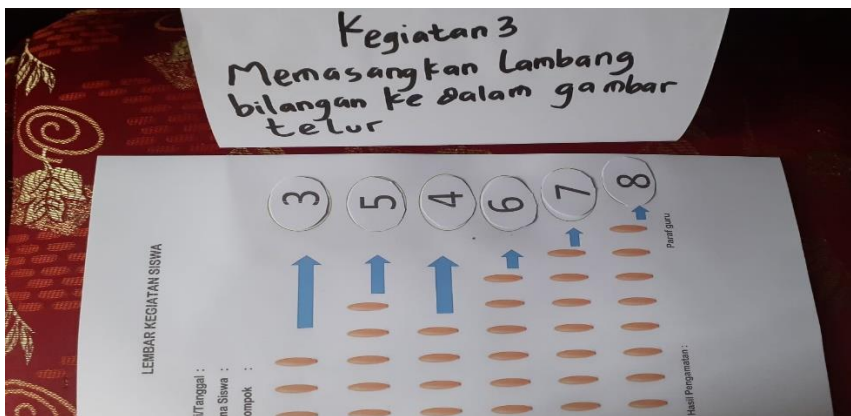 Kegiatan 3
Memasangkan Lambang
bilangan ke dalam gambar
telur
LEMBAR KEGIATAN SISWA
/Tanggal :
na Siswa :
ompok :
3
5
4
6
7
8
Paraf guru
Hasil Pengamatan :